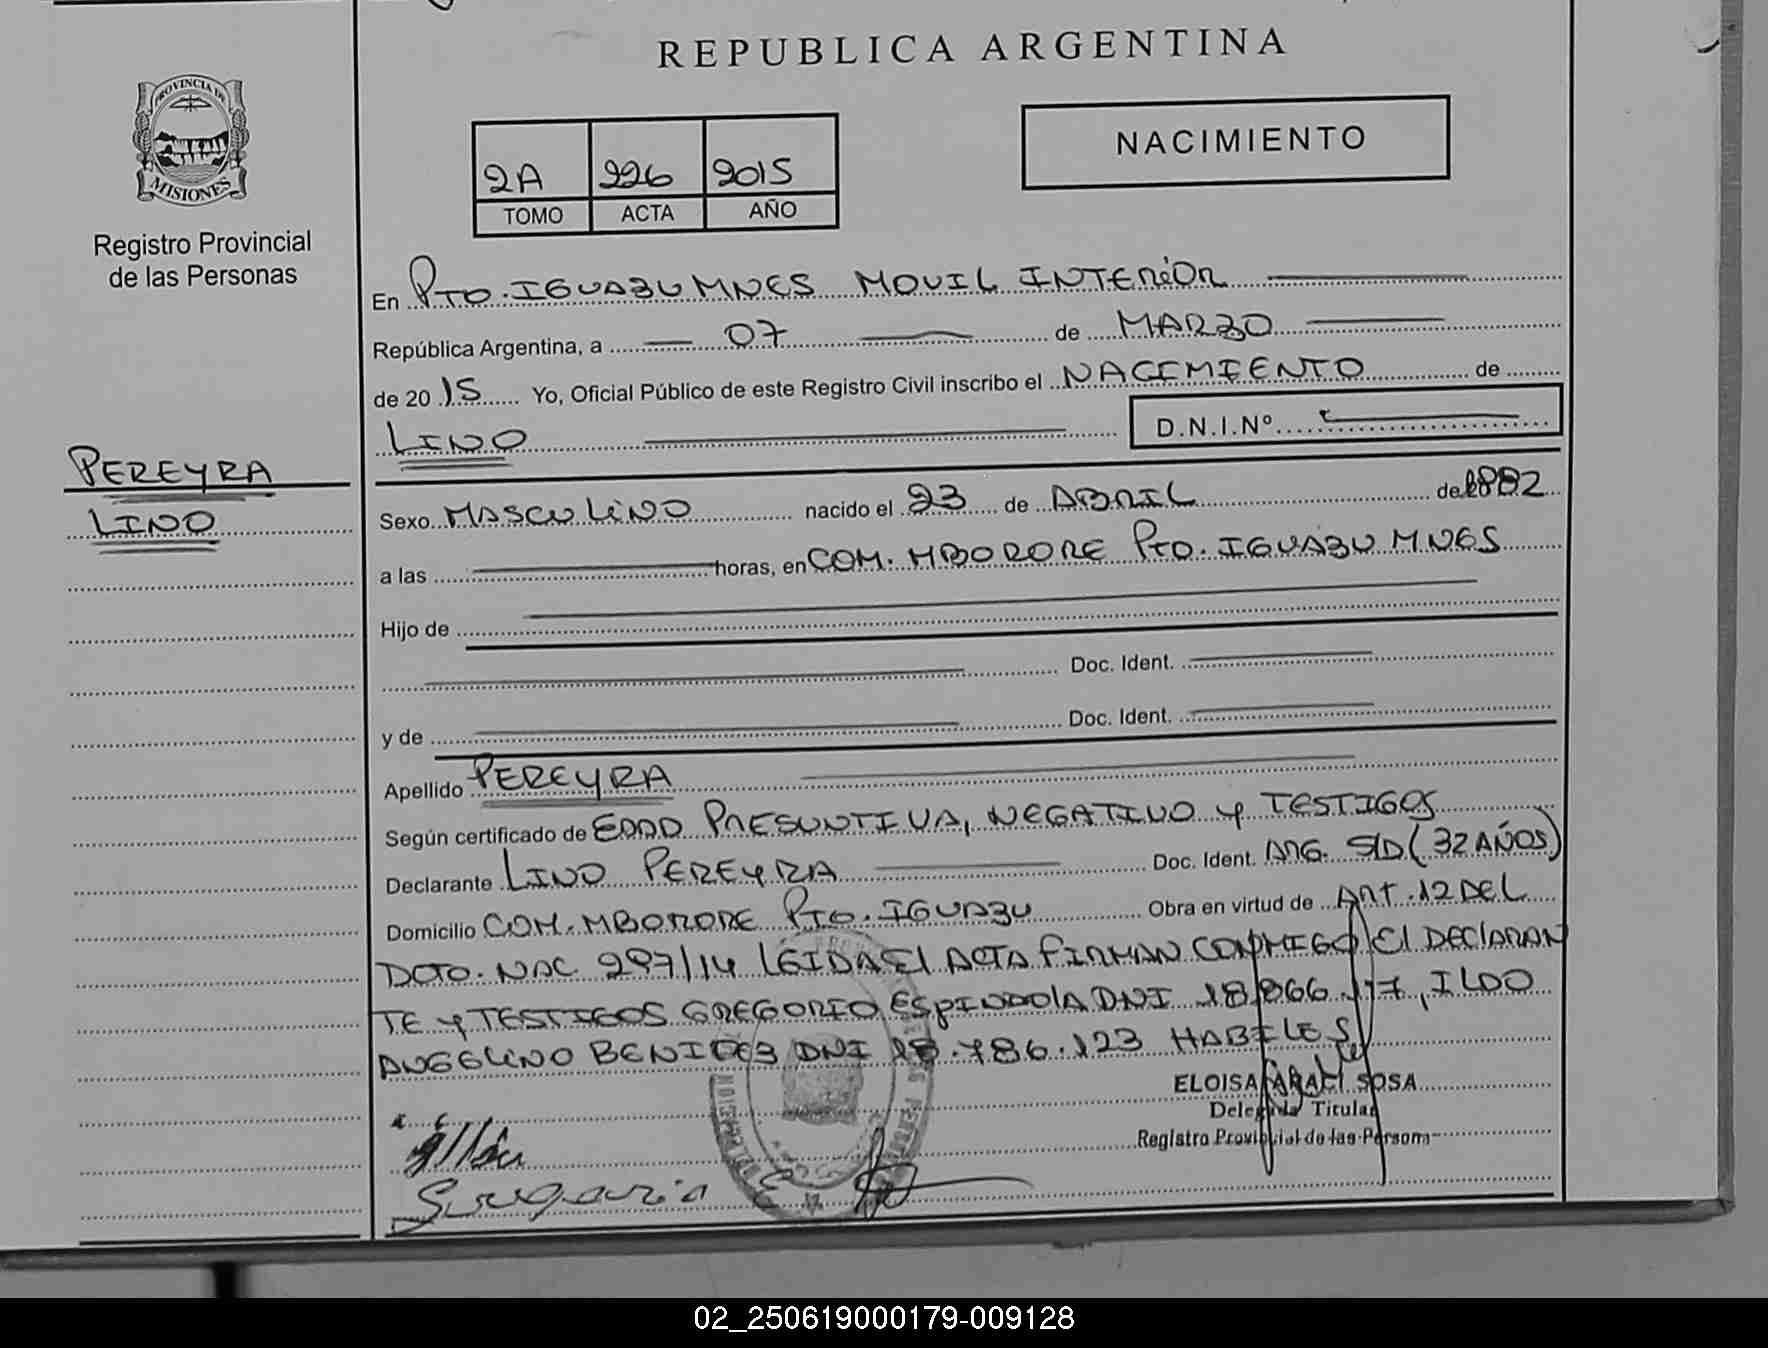 REPUBLICA ARGENTINA
PROVINCIA DE
MISIONES
Registro Provincial
de las Personas
2A 226 2015
TOMO ACTA AÑO
NACIMIENTO
En PTO. IGUAZU MNES MOVIL INTERIOR
República Argentina, a 07 de MARZO
de 2015 Yo, Oficial Público de este Registro Civil inscribo el NACIMIENTO de
LINO D.N.I.Nº
PEREYRA
LINO
Sexo MASCULINO nacido el 23 de ABRIL de 1982
a las horas, en COM. MBORORE PTO. IGUAZU MNES
Hijo de
Doc. Ident.
y de Doc. Ident.
Apellido PEREYRA
Según certificado de EDAD PRESUNTIVA, NEGATIVO y TESTIGOS
Declarante LINO PEREYRA Doc. Ident. ARG. S/D (32 AÑOS)
Domicilio COM. MBORORE PTO. IGUAZU Obra en virtud de ART. 12 DEL
DCTO. NAC 297/14 LEIDA El ACTA FIRMAN CONMIGO El DECLARAN
TE y TESTIGOS GREGORIO ESPINDOlA DNI ILDO
ANGELINO BENITEZ DNI .786.123 HABILES
ELOISA ARALI SOSA
Delegada Titular
Registro Provincial de las Persona
Gregorio E
02_250619000179-009128